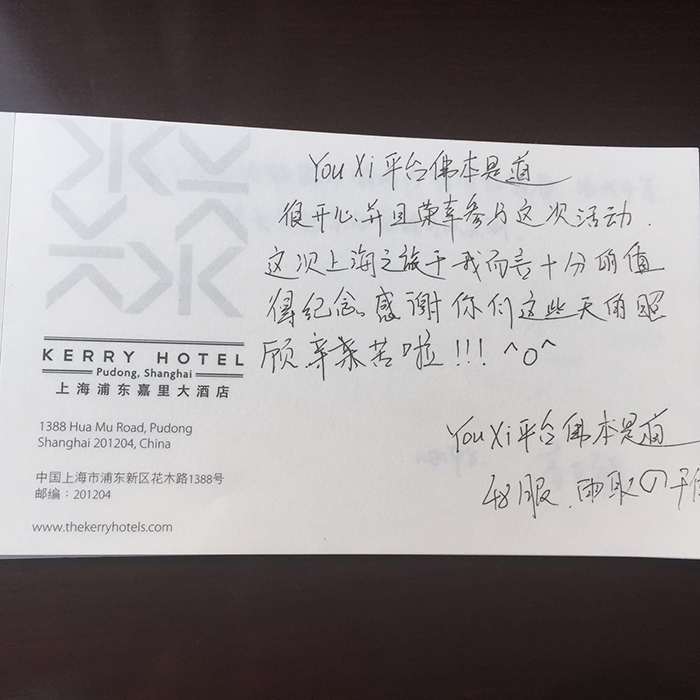 YouXi平台佛本是道
很开心并且荣幸参与这次活动.
这次上海之旅于我而言十分的值
得纪念。感谢你们这些天的照
顾,辛苦啦!!! ^o^
YouXi平台佛本是道
48服.雨取の千
KERRY HOTEL
Pudong, Shanghai
上海浦东嘉里大酒店
1388 Hua Mu Road, Pudong
Shanghai 201204, China
中国上海市浦东新区花木路1388号
邮编:201204
www.thekerryhotels.com